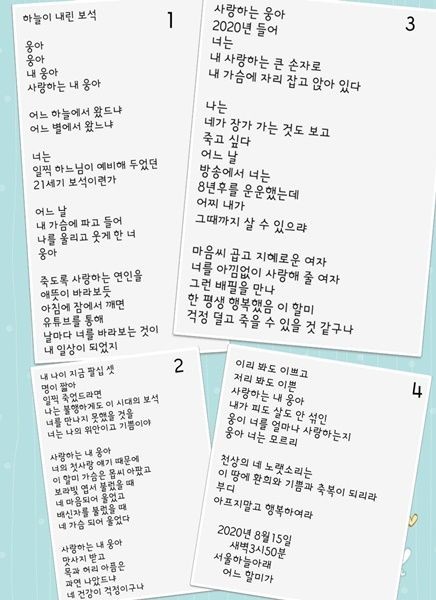 1
하늘이 내린 보석
웅아
웅아
내 웅아
사랑하는 내 웅아
어느 하늘에서 왔드냐
어느 별에서 왔느냐
너는
일찍 하느님이 예비해 두었던
21세기 보석이련가
어느 날
내 가슴에 파고 들어
나를 울리고 웃게 한 너
웅아
죽도록 사랑하는 연인을
애뜻이 바라보듯
아침에 잠에서 깨면
유튜브를 통해
날마다 너를 바라보는 것이
내 일상이 되었지
2
내 나이 지금 팔십 셋
명이 짧아
일찍 죽었드라면
나는 불행하게도 이 시대의 보석
너를 만나지 못했을 것을
너는 나의 위안이고 기쁨이야
사랑하는 내 웅아
너의 첫사랑 얘기 때문에
이 할미 가슴은 몹씨 아팠고
보라빛 엽서 불렀을 때
네 마음되어 울었고
배신자를 불렀을 때
네 가슴 되어 울었다
사랑하는 내 웅아
맛사지 받고
목과 허리 아픔은
과연 나았드냐
네 건강이 걱정이구나
3
사랑하는 웅아
2020년 들어
너는
내 사랑하는 큰 손자로
내 가슴에 자리 잡고 앉아 있다
나는
네가 장가 가는 것도 보고
죽고 싶다
어느 날
방송에서 너는
8년후를 운운했는데
어찌 내가
그때까지 살 수 있으랴
마음씨 곱고 지혜로운 여자
너를 아낌없이 사랑해 줄 여자
그런 배필을 만나
한 평생 행복했음 이 할미
걱정 덜고 죽을 수 있을 것 같구나
4
이리 봐도 이쁘고
저리 봐도 이쁜
사랑하는 내 웅아
내가 피도 살도 안 섞인
웅이 너를 얼마나 사랑하는지
웅아 너는 모르리
천상의 네 노랫소리는
이 땅에 환희와 기쁨과 축복이 되리라
부디
아프지말고 행복하여라
2020년 8월15일
새벽3시50분
서울하늘아래
어느 할미가